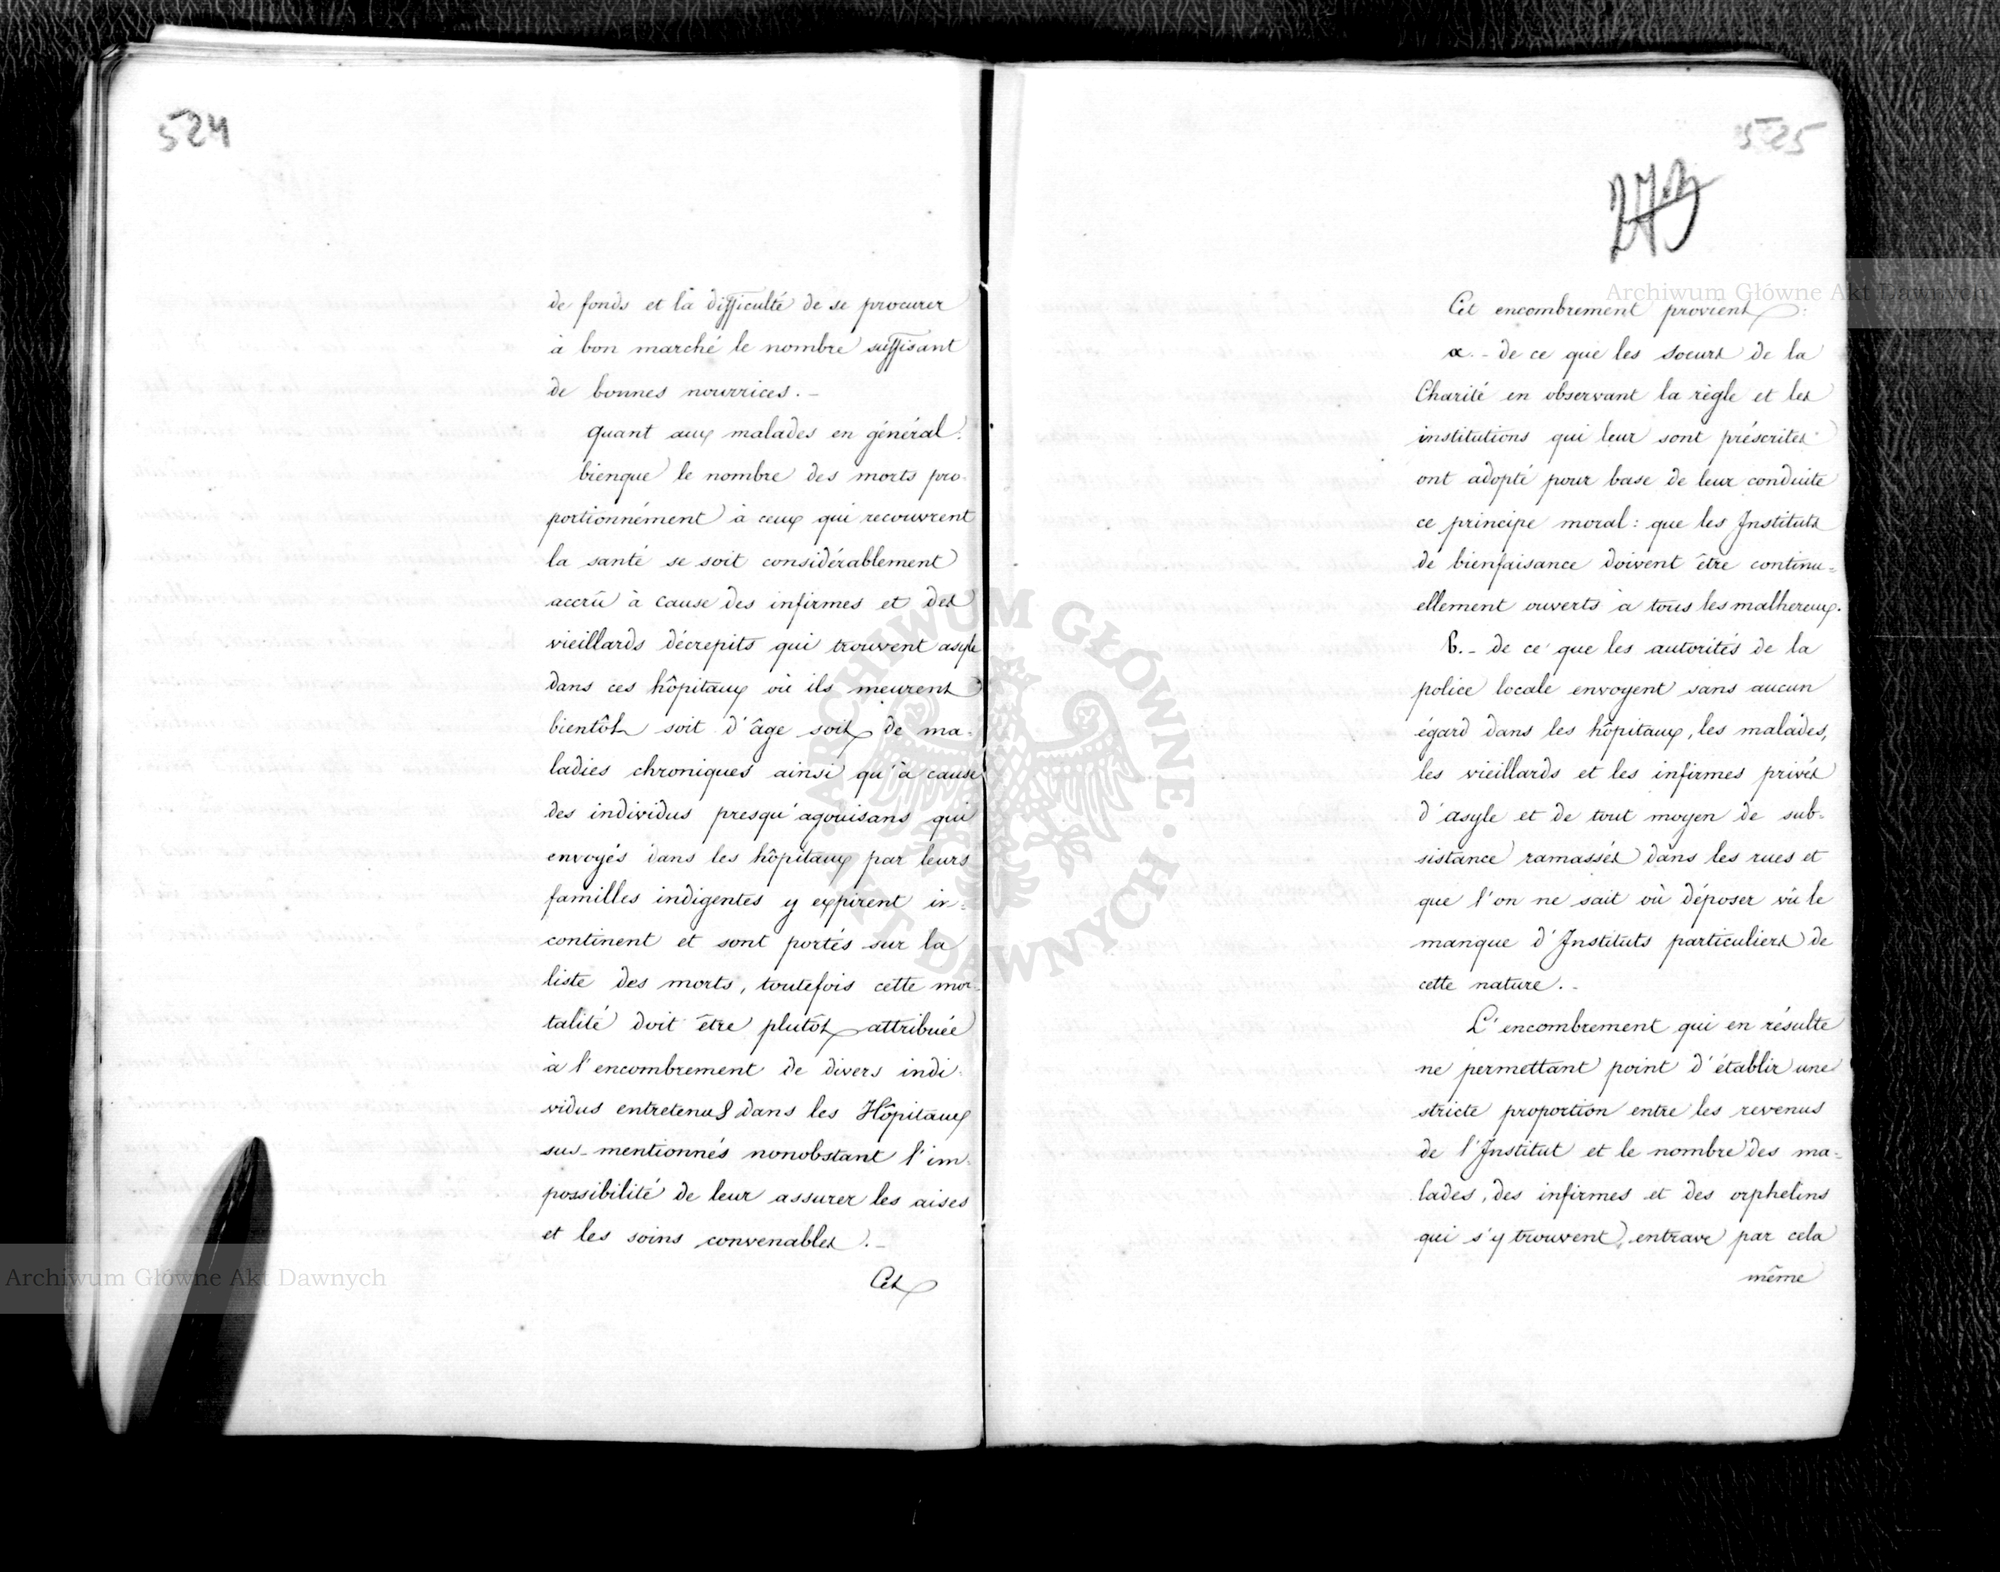 524
de fonds et la difficulté de se procurer
à bon marché le nombre suffisant
de bonnes nourrices. –
quant aux malades en général:
bienque le nombre des morts pro-
portionnément à ceux qui recouvrent
la santé se soit considérablement
accrû à cause des infirmes et des
vieillards décrepits qui trouvent asyle
dans ces hôpitaux où ils meurent
bientôt soit d'âge soit de ma-
ladies chroniques ainsi qu'à cause
des individus presqu'agonisans qui
envoyés dans les hôpitaux par leurs
familles indigentes y expirent in-
continent et sont portés sur la
liste des morts, toutefois cette mor-
talité doit être plutôt attribuée
à l'encombrement de divers indi-
vidus entretenus dans les Hôpitaux
sus-mentionnés nonobstant l'im-
possibilité de leur assurer les aises
et les soins convenables. –
Cet
525
273
Cet encombrement provient:
α. – de ce que les soeurs de la
Charité en observant la règle et les
institutions qui leur sont préscrites
ont adopté pour base de leur conduite
ce principe moral: que les Instituts
de bienfaisance doivent être continu-
ellement ouverts à tous les malhereux.
β. – de ce que les autorités de la
police locale envoyent sans aucun
égard dans les hôpitaux, les malades,
les vieillards et les infirmes privés
d'asyle et de tout moyen de sub-
sistance ramassés dans les rues et
que l'on ne sait où déposer vû le
manque d'Instituts particuliers de
cette nature. –
L'encombrement qui en résulte
ne permettant point d'établir une
stricte proportion entre les revenus
de l'Institut et le nombre des ma-
lades, des infirmes et des orphelins
qui s'y trouvent, entrave par cela
même
Archiwum Główne Akt Dawnych
Archiwum Główne Akt Dawnych
ARCHIWUM GŁÓWNE · AKT DAWNYCH ·